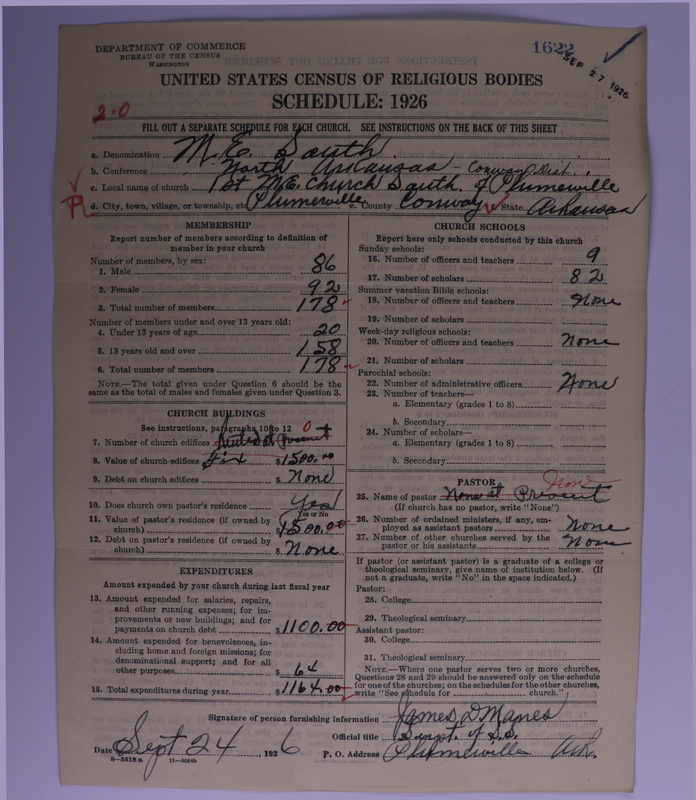 DEPARTMENT OF COMMERCE
BUREAU OF THE CENSUS
WASHINGTON
1622
SEP 27 1926
UNITED STATES CENSUS OF RELIGIOUS BODIES
SCHEDULE: 1926
2-0
FILL OUT A SEPARATE SCHEDULE FOR EACH CHURCH. SEE INSTRUCTIONS ON THE BACK OF THIS SHEET
a. Denomination M.E. South
b. Conference North Arkansas - Conway Dist.
c. Local name of church 1st M.E. Church South of Plumerville
d. City, town, village, or township, etc Plumerville e. County Conway f. State Arkansas
MEMBERSHIP
Report number of members according to definition of
member in your church
Number of members, by sex:
1. Male 86
2. Female 92
3. Total number of members 178
Number of members under and over 13 years old:
4. Under 13 years of age 20
5. 13 years old and over 158
6. Total number of members 178
NOTE.—The total given under Question 6 should be the
same as the total of males and females given under Question 3.
CHURCH BUILDINGS
See instructions, paragraphs 10 to 12
7. Number of church edifices at Present 0
8. Value of church edifices $1500.00
9. Debt on church edifices $ None
10. Does church own pastor's residence? Yes
Yes or No
11. Value of pastor's residence (if owned by
church) $1500.00
12. Debt on pastor's residence (if owned by
church) $ None
EXPENDITURES
Amount expended by your church during last fiscal year
13. Amount expended for salaries, repairs,
and other running expenses; for im-
provements or new buildings; and for
payments on church debt $1100.00
14. Amount expended for benevolences, in-
cluding home and foreign missions; for
denominational support; and for all
other purposes $ 64
15. Total expenditures during year $1164.00
CHURCH SCHOOLS
Report here only schools conducted by this church
Sunday schools:
16. Number of officers and teachers 9
17. Number of scholars 82
Summer vacation Bible schools:
18. Number of officers and teachers None
19. Number of scholars
Week-day religious schools:
20. Number of officers and teachers None
21. Number of scholars
Parochial schools:
22. Number of administrative officers None
23. Number of teachers—
a. Elementary (grades 1 to 8)
b. Secondary
24. Number of scholars—
a. Elementary (grades 1 to 8)
b. Secondary
PASTOR
None
25. Name of pastor None at Present
(If church has no pastor, write "None")
26. Number of ordained ministers, if any, em-
ployed as assistant pastors None
27. Number of other churches served by the
pastor or his assistants None
If pastor (or assistant pastor) is a graduate of a college or
theological seminary, give name of institution below. (If
not a graduate, write "No" in the space indicated.)
Pastor:
28. College
29. Theological seminary
Assistant pastor:
30. College
31. Theological seminary
NOTE.—Where one pastor serves two or more churches,
Questions 28 and 29 should be answered only on the schedule
for one of the churches; on the schedules for the other churches,
write "See schedule for church."
Signature of person furnishing information James D Manes
Official title Supt. of S.S.
Date Sept 24, 1926
P. O. Address Plumerville Ark.
8-5518a 11-9024b